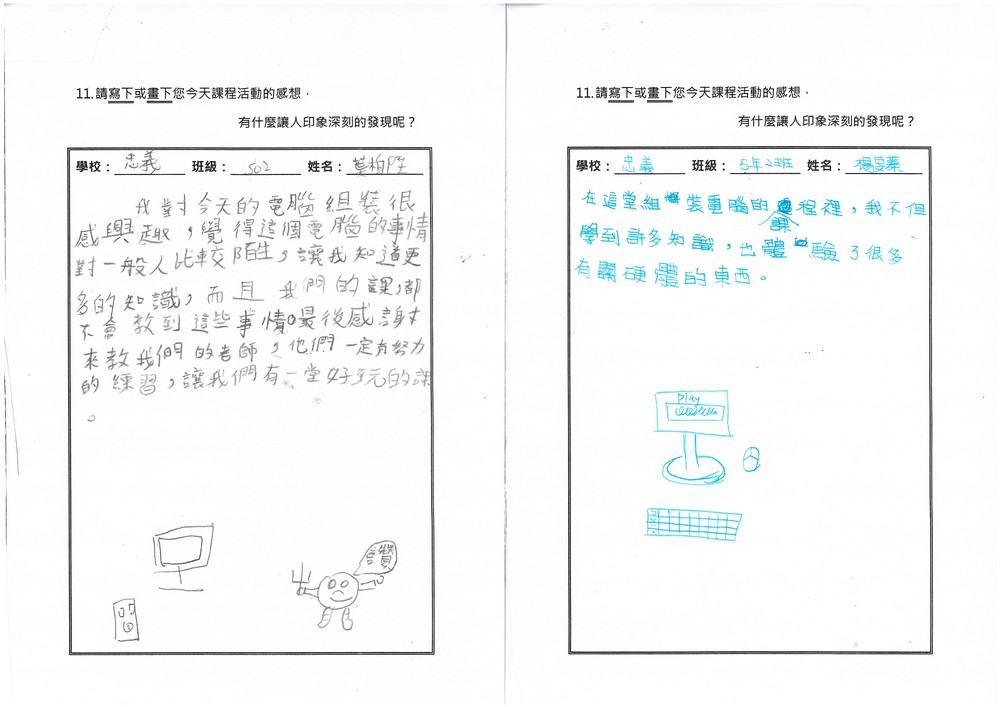 11.請寫下或畫下您今天課程活動的感想，
有什麼讓人印象深刻的發現呢？
學校：忠義 班級：502 姓名：莫柏
我對今天的電腦組裝很
感興趣，覺得這個電腦的事情
對一般人比較陌生，讓我知道更
多的知識，而且我們的課，都
不會教到這些事情。最後感謝
來教我們的老師，他們一定有努力
的練習，讓我們有一堂好玩的課
。
讚
11.請寫下或畫下您今天課程活動的感想，
有什麼讓人印象深刻的發現呢？
學校：忠義 班級：5年2班 姓名：楊旻蓁
在這堂組裝電腦的課程裡，我不但
學到許多知識，也體驗了很多
有關硬體的東西。
play